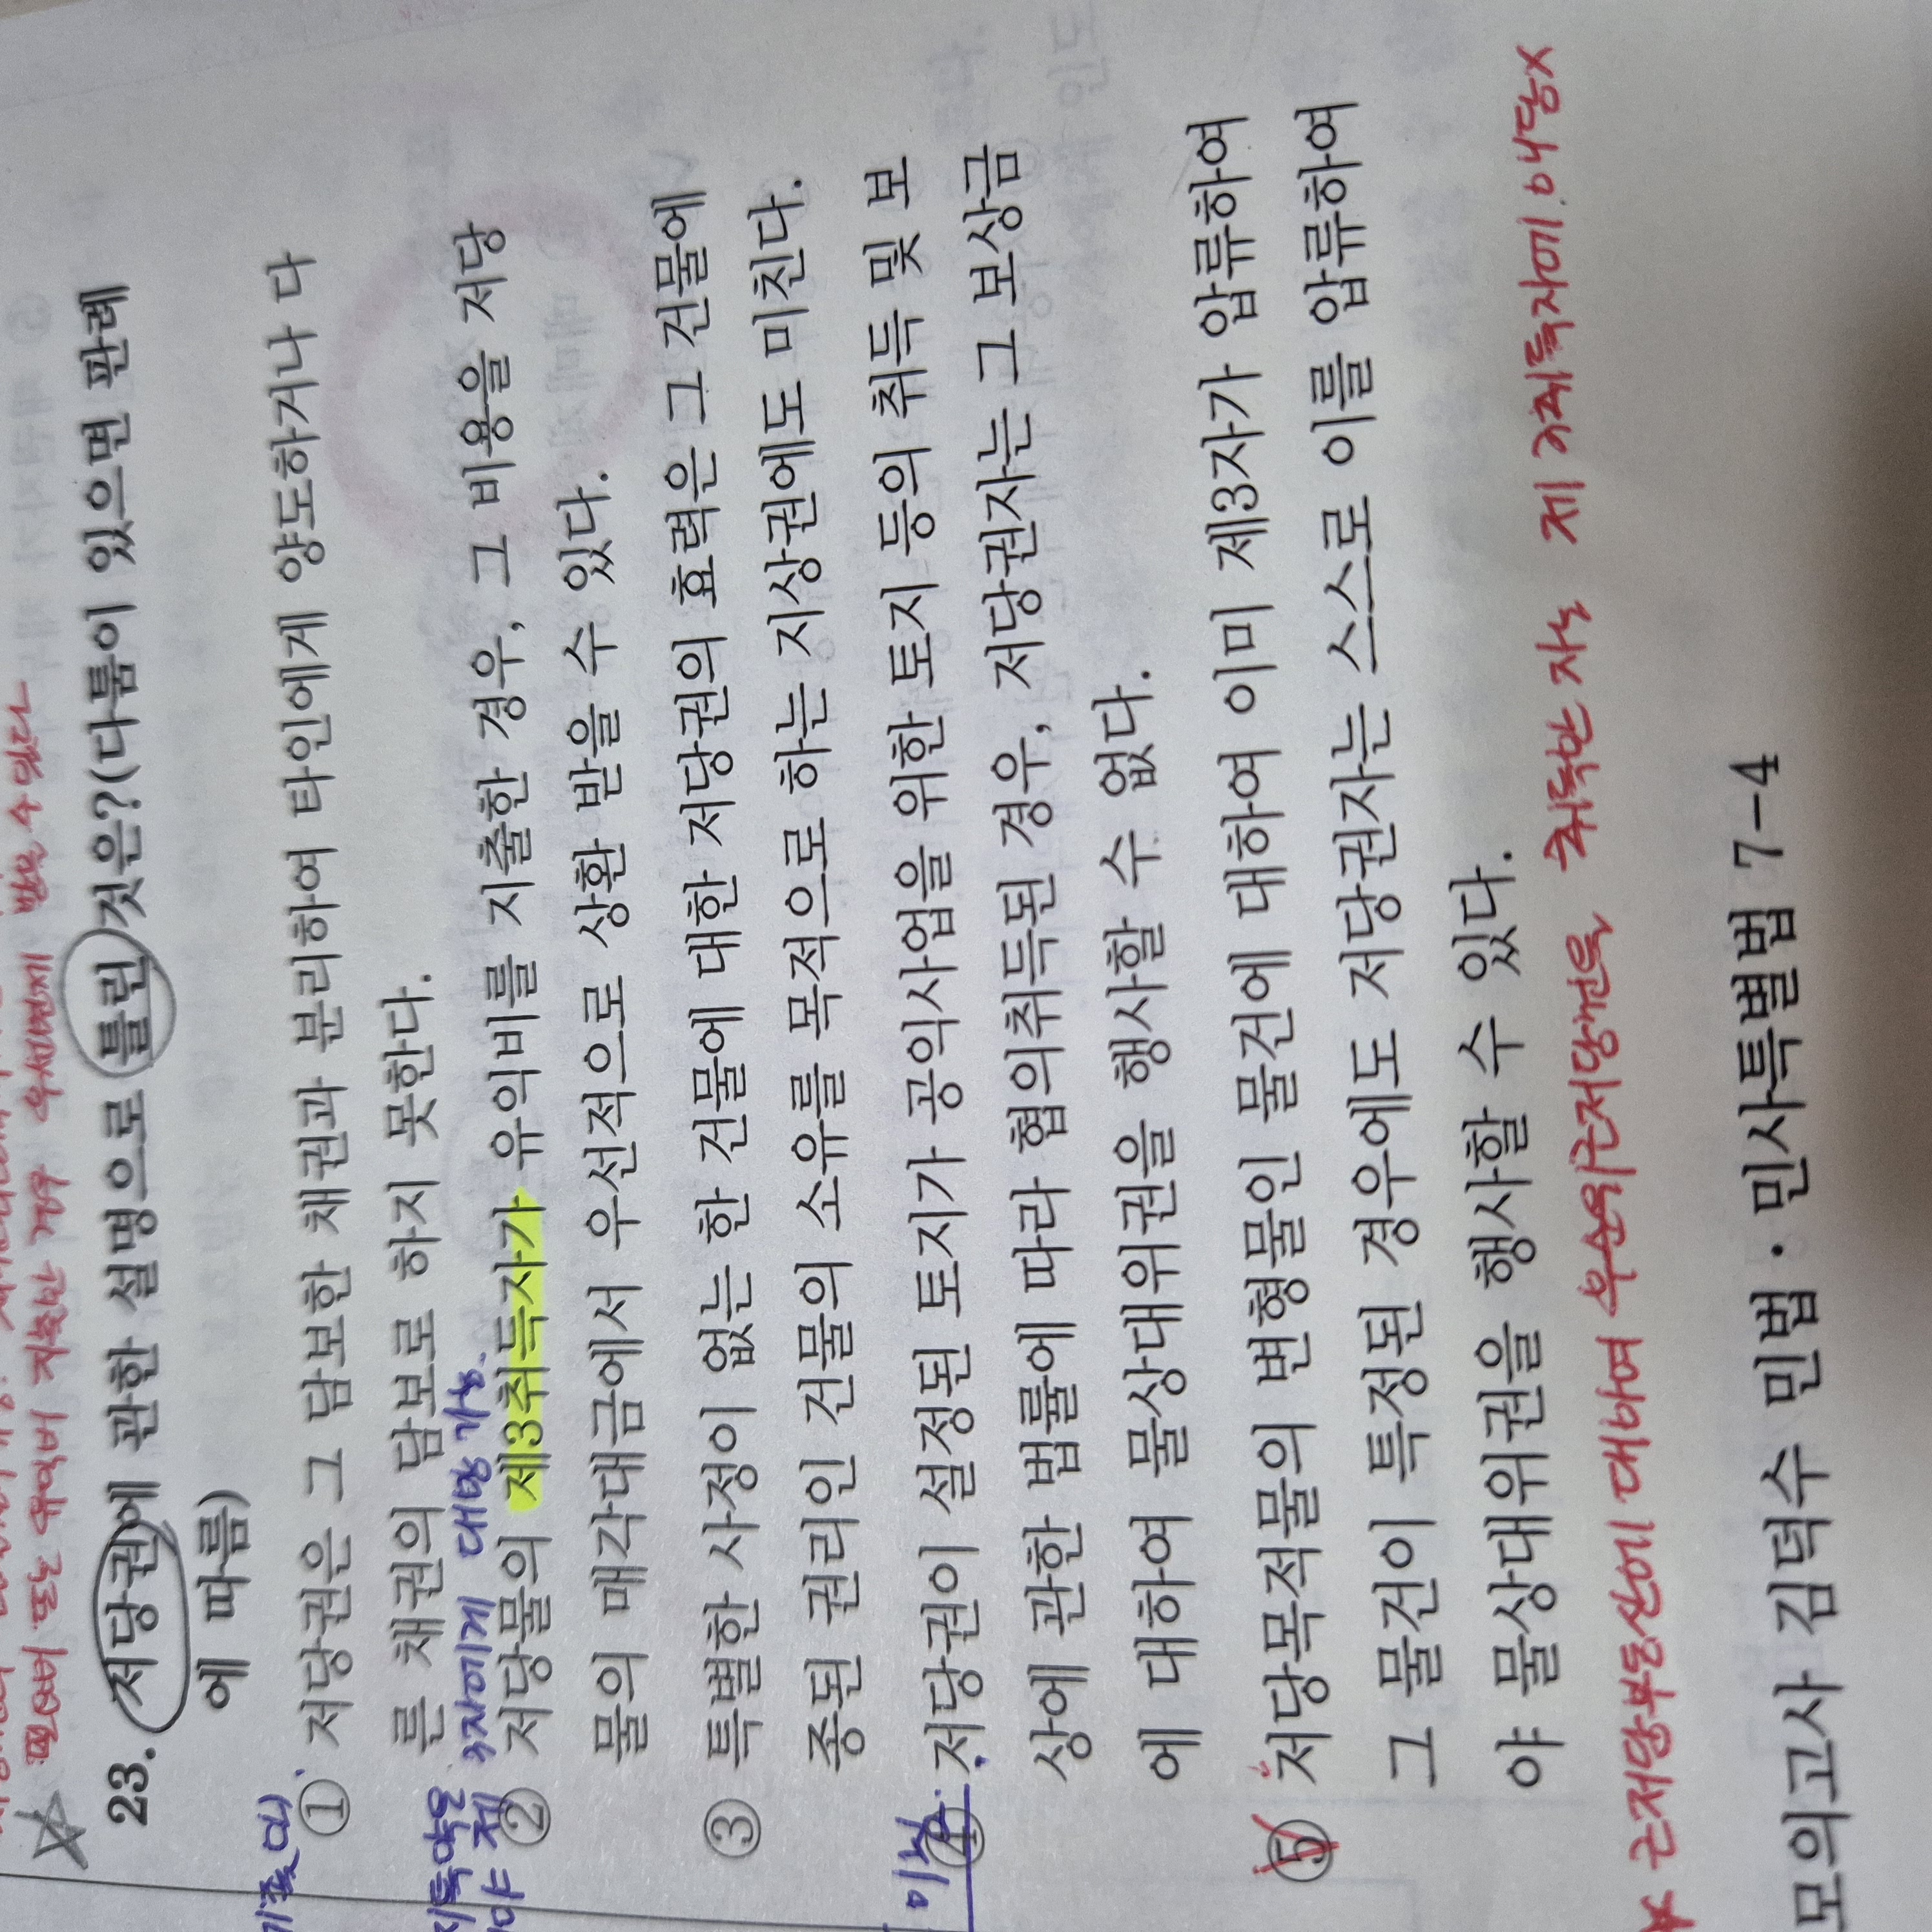 필요비 또는 유익비 지출한 경우 우선변제 받을 수 있다
23. 저당권에 관한 설명으로 틀린 것은?(다툼이 있으면 판례
에 따름)
① 저당권은 그 담보한 채권과 분리하여 타인에게 양도하거나 다
른 채권의 담보로 하지 못한다.
3자에게 대항 가능
② 저당물의 제3취득자가 유익비를 지출한 경우, 그 비용을 저당
물의 매각대금에서 우선적으로 상환 받을 수 있다.
③ 특별한 사정이 없는 한 건물에 대한 저당권의 효력은 그 건물에
종된 권리인 건물의 소유를 목적으로 하는 지상권에도 미친다.
④ 저당권이 설정된 토지가 공익사업을 위한 토지 등의 취득 및 보
상에 관한 법률에 따라 협의취득된 경우, 저당권자는 그 보상금
에 대하여 물상대위권을 행사할 수 없다.
⑤ 저당목적물의 변형물인 물건에 대하여 이미 제3자가 압류하여
그 물건이 특정된 경우에도 저당권자는 스스로 이를 압류하여
야 물상대위권을 행사할 수 있다.
근저당부동산에 대하여 후순위근저당권을 취득한 자는 제3취득자에 해당X
모의고사 김덕수 민법·민사특별법 7-4